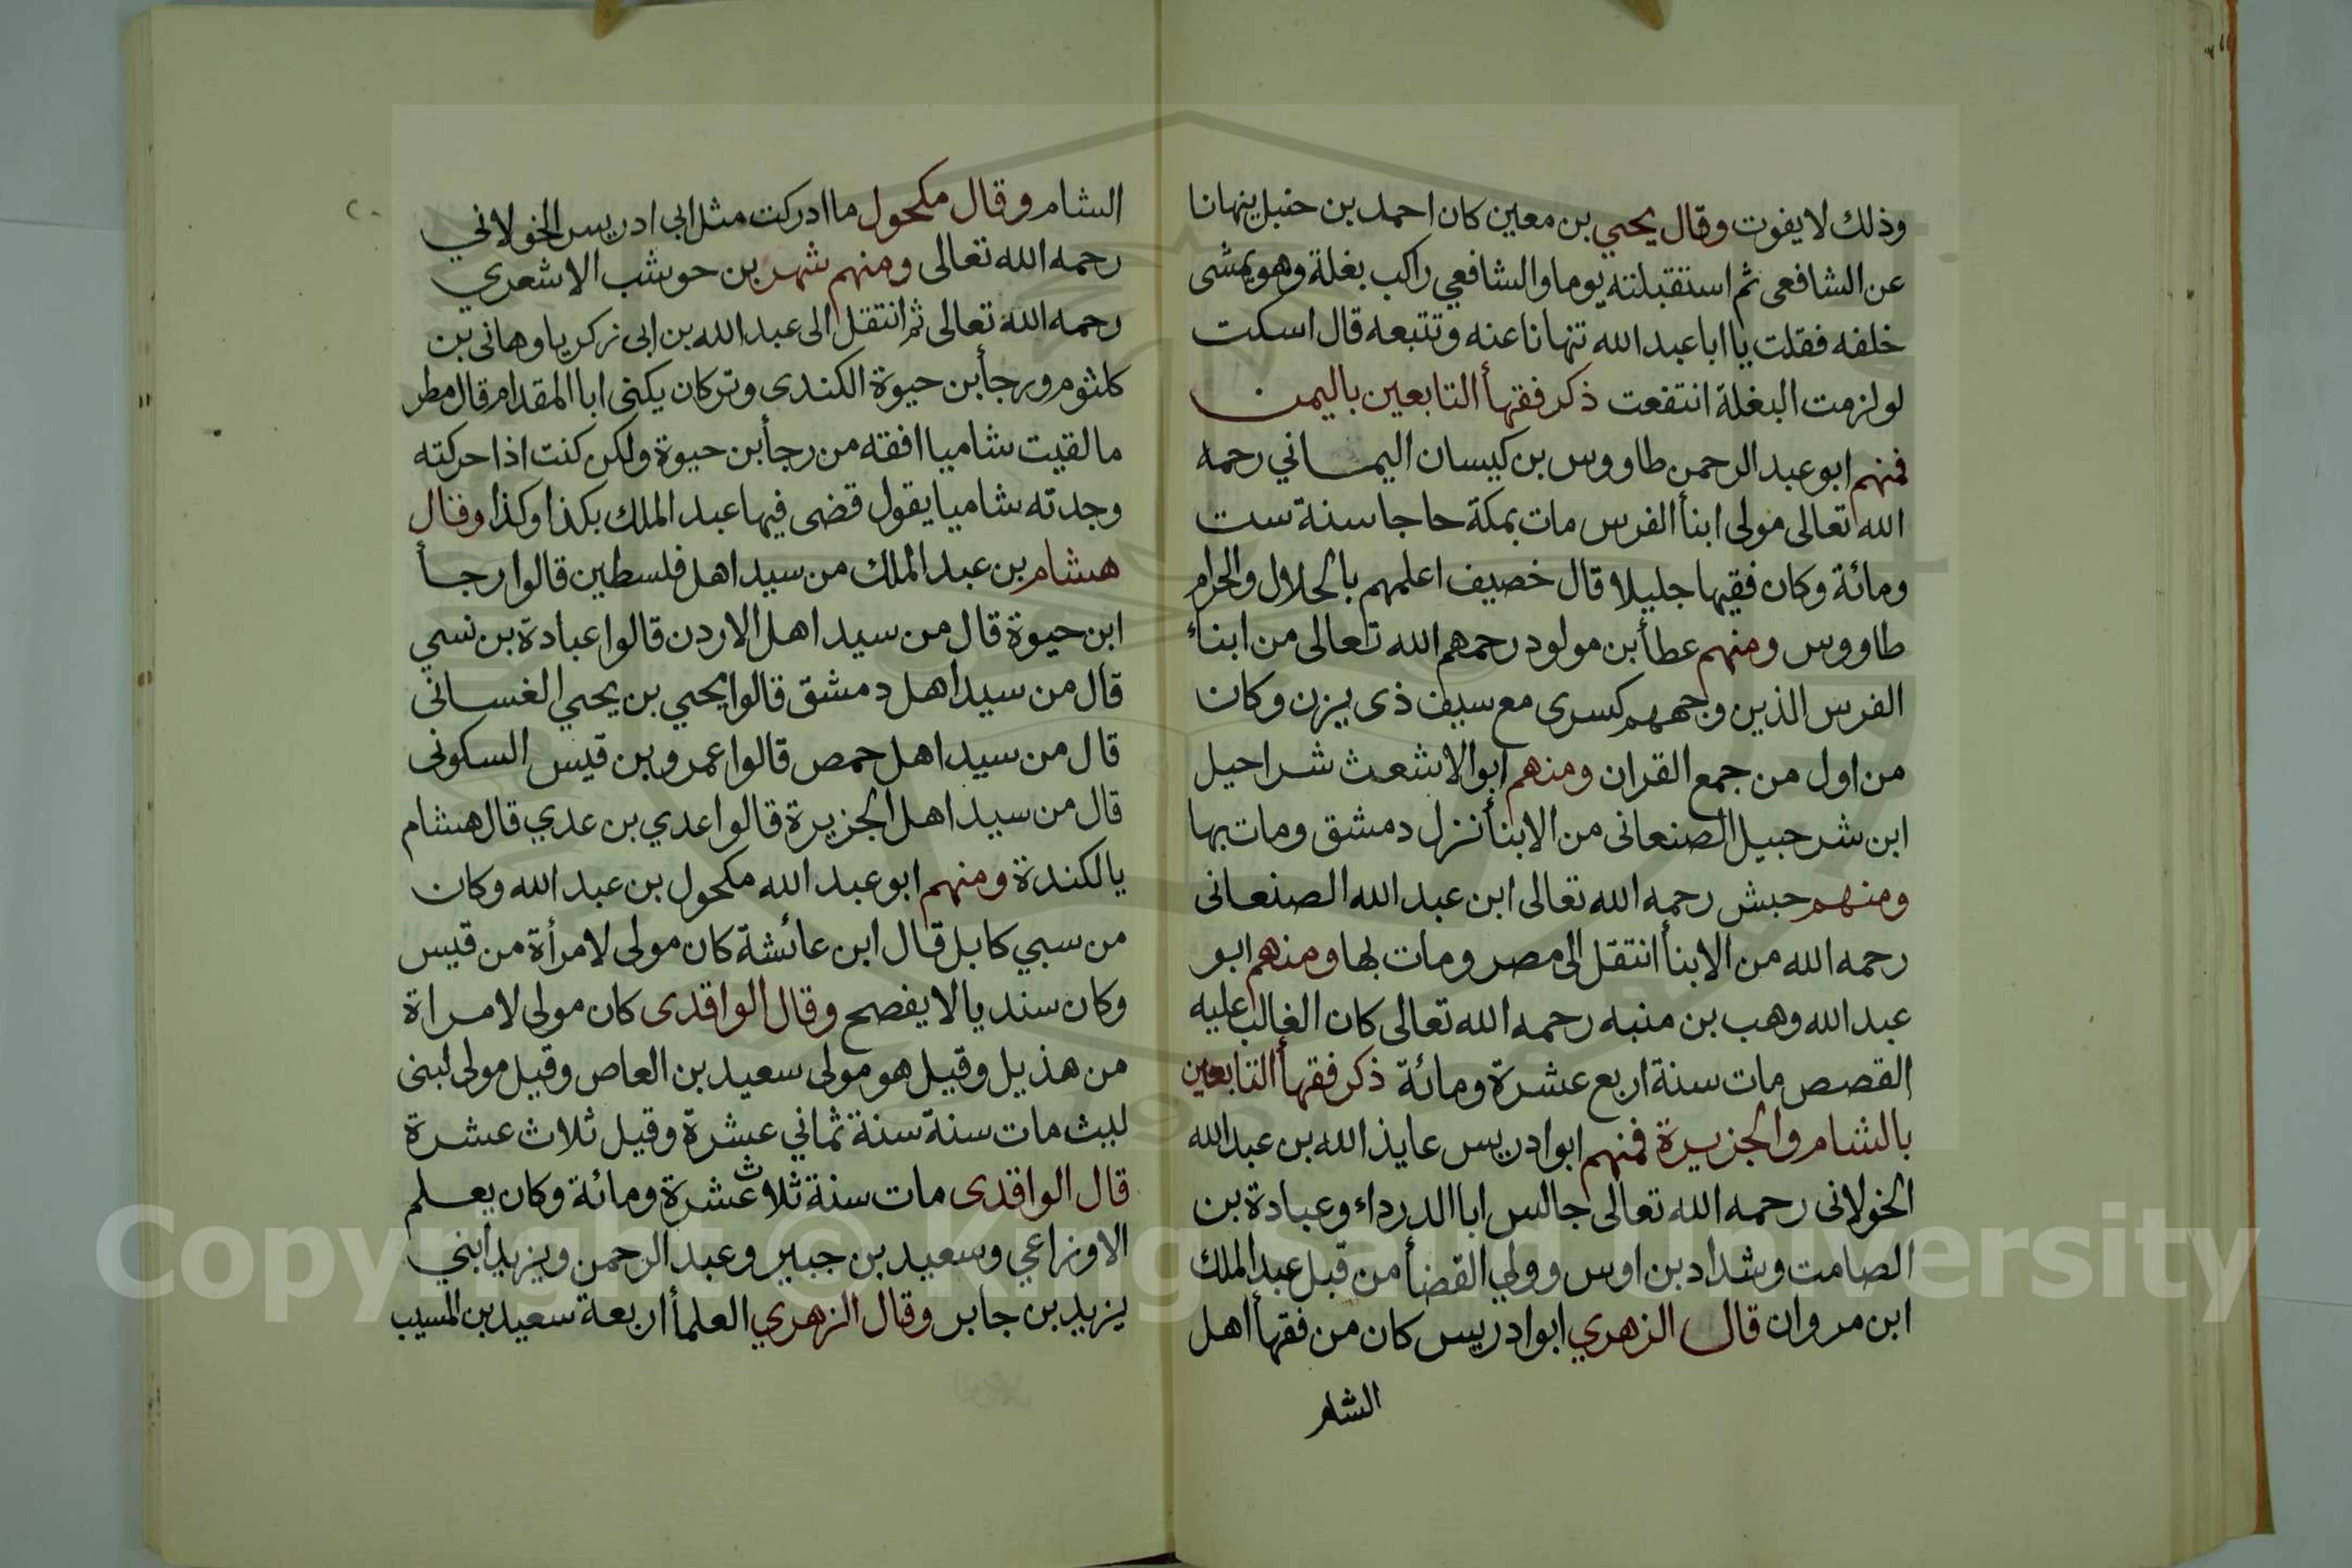 وذلك لا يفوت وقال يحيي بن معين كان احمد بن حنبل ينهانا
عن الشافعى ثم استقبلته يوما والشافعي راكب بغلة وهو يمشى
خلفه فقلت يا ابا عبد الله تنهانا عنه وتتبعه قال اسكت
لو لزمت البغلة انتفعت ذكر فقهأ التابعين باليمن
فمنهم ابو عبد الرحمن طاووس بن كيسان اليماني رحمه
الله تعالى مولى ابنأ الفرس مات بمكة حاجا سنة ست
ومائة وكان فقيها جليلا قال خصيف اعلمهم بالحلال والحرام
طاووس ومنهم عطأ بن مولود رحمهم الله تعالى من ابناء
الفرس الذين وجههم كسرى مع سيف ذى يزن وكان
من اول من جمع القران ومنهم ابو الاشعث شراحيل
ابن شرحبيل الصنعانى من الابنأ نزل دمشق ومات بها
ومنهم حبش رحمه الله تعالى ابن عبد الله الصنعانى
رحمه الله من الابنأ انتقل الى مصر ومات بها ومنهم ابو
عبد الله وهب بن منبه رحمه الله تعالى كان الغالب عليه
القصص مات سنة اربع عشرة ومائة ذكر فقهأ التابعين
بالشام والجزيرة فمنهم ابو ادريس عايذ الله بن عبد الله
الخولانى رحمه الله تعالى جالس ابا الدرداء وعبادة بن
الصامت وشداد بن اوس وولي القضأ من قبل عبد الملك
ابن مروان قال الزهري ابو ادريس كان من فقهأ اهل
الشام
الشام وقال مكحول ما ادركت مثل ابى ادريس الخولاني
رحمه الله تعالى ومنهم شهر بن حوشب الاشعري
رحمه الله تعالى ثم انتقل الى عبد الله بن ابى زكريا وهانى بن
كلثوم ورجأ بن حيوة الكندى وتركان يكنى ابا المقدام قال مطر
ما لقيت شاميا افقه من رجأ بن حيوة ولكن كنت اذا حركته
وجدته شاميا يقول قضى فيها عبد الملك بكذا وكذا وقال
هشام بن عبد الملك من سيد اهل فلسطين قالوا رجأ
ابن حيوة قال من سيد اهل الاردن قالوا عبادة بن نسي
قال من سيد اهل دمشق قالوا يحيي بن يحيي الغسانى
قال من سيد اهل حمص قالوا عمرو بن قيس السكونى
قال من سيد اهل الجزيرة قالوا عدي بن عدي قال هشام
يالكندة ومنهم ابو عبد الله مكحول بن عبد الله وكان
من سبي كابل قال ابن عائشة كان مولى لامرأة من قيس
وكان سنديا لا يفصح وقال الواقدى كان مولى لامراة
من هذيل وقيل هو مولى سعيد بن العاص وقيل مولى لبنى
ليث مات سنة سنة ثماني عشرة وقيل ثلاث عشرة
قال الواقدى مات سنة ثلاث عشرة ومائة وكان يعلم
الاوزاعي وسعيد بن جبير وعبد الرحمن ويزيد ابني
يزيد بن جابر وقال الزهري العلمأ اربعة سعيد بن المسيب
Copyright © King Saud University